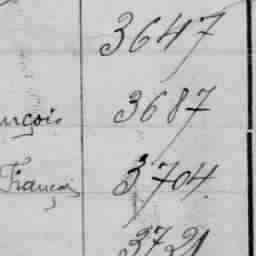 3647
nçois 3687
Françoi 3704
3721